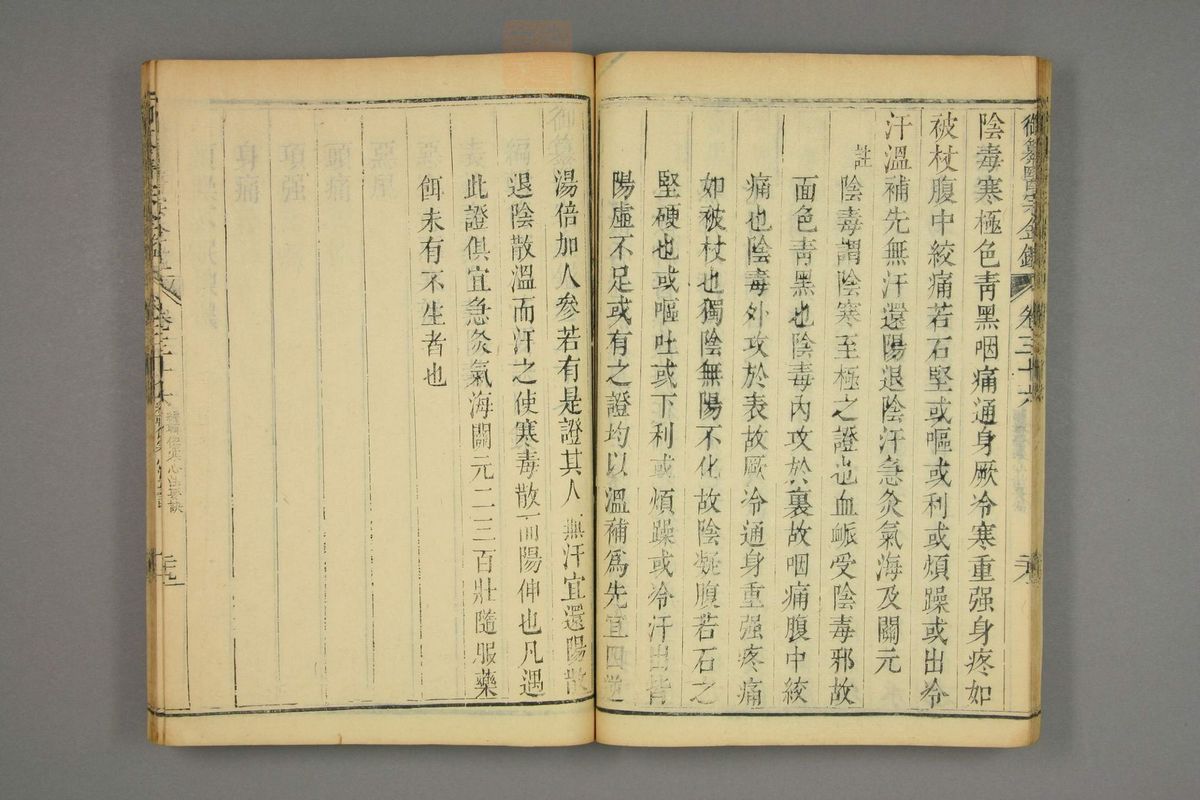 御纂醫宗金鑑 卷三十六
陰毒寒極色靑黑咽痛通身厥冷寒重强身疼如
被杖腹中絞痛若石堅或嘔或利或煩躁或出冷
汗溫補先無汗還陽退陰汗急灸氣海及關元
註
陰毒謂陰寒至極之證也血衇受陰毒邪故
面色靑黑也陰毒內攻於裏故咽痛腹中絞
痛也陰毒外攻於表故厥冷通身重强疼痛
如被杖也獨陰無陽不化故陰凝腹若石之
堅硬也或嘔吐或下利或煩躁或冷汗出皆
陽虛不足或有之證均以溫補爲先宜四逆
湯倍加人參若有是證其人無汗宜還陽散
退陰散溫而汗之使寒毒散而陽伸也凡遇
此證俱宜急灸氣海關元二三百壯隨服藥
餌未有不生者也